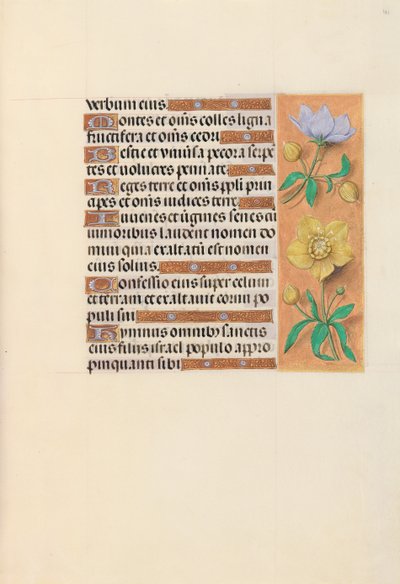 verbum eius.
Montes et om̄s colles ligna
fructifera et om̄s cedri
Bestie et vniusa pecora serpē
tes et volucres pennate.
Reges terre et om̄s ppli prin
cipes et om̄s iudices terre.
Iuuenes et ūgines senes cū
iunioribus laudent nomen do
mini quia exaltatū est nomen
eius solius.
Confessio eius super celum
et terram et exaltauit cornu po
puli sui
Hymnus omnibȝ sanctis
eius filijs israel populo appro
pinquanti sibi